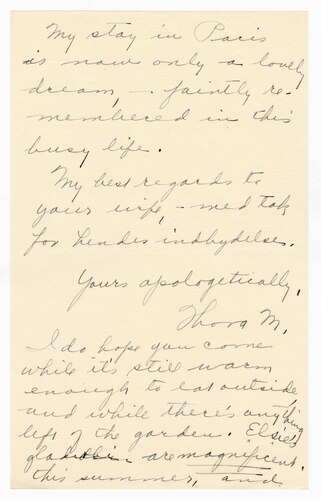 My stay in Paris
is now only a lovely
dream, - faintly re-
membered in this
busy life.
My best regards to
your wife, - med tak
for hendes indbydelse.
Yours apologetically,
Thora M.
I do hope you come
while it's still warm
enough to eat outside,
and while there's anything
left of the garden. Elsie's
gladioli are magnificent
this summer, and